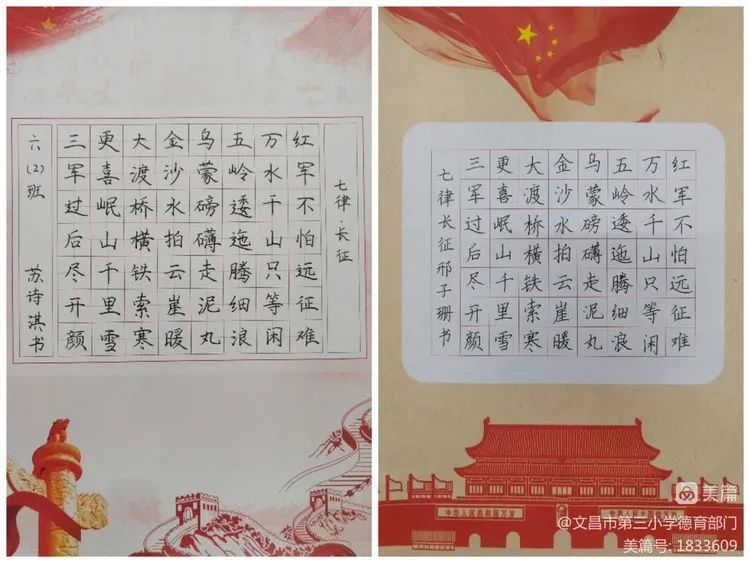 七律·长征
红军不怕远征难
万水千山只等闲
五岭逶迤腾细浪
乌蒙磅礴走泥丸
金沙水拍云崖暖
大渡桥横铁索寒
更喜岷山千里雪
三军过后尽开颜
六(2)班 苏诗淇书
红军不怕远征难
万水千山只等闲
五岭逶迤腾细浪
乌蒙磅礴走泥丸
金沙水拍云崖暖
大渡桥横铁索寒
更喜岷山千里雪
三军过后尽开颜
七律长征邢子珊书
中华人民共和国万岁
美篇
@文昌市第三小学德育部门
美篇号:1833609